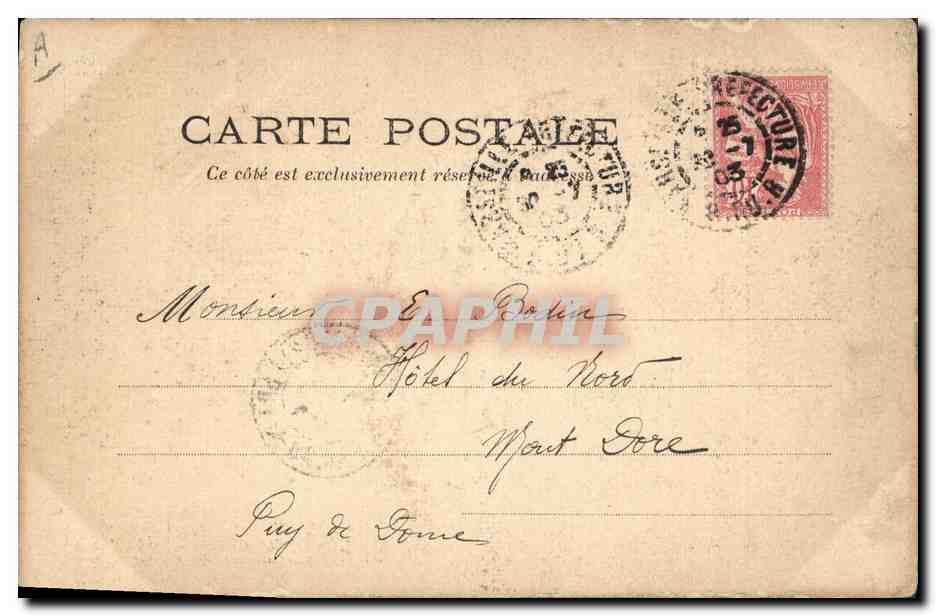 A
CARTE POSTALE
Ce côté est exclusivement réservé à l'adresse
PREFECTURE
25
-7
03
Monsieur E. Bodin
CPAPHIL
Hôtel du Nord
Mont Dore
Puy de Dome